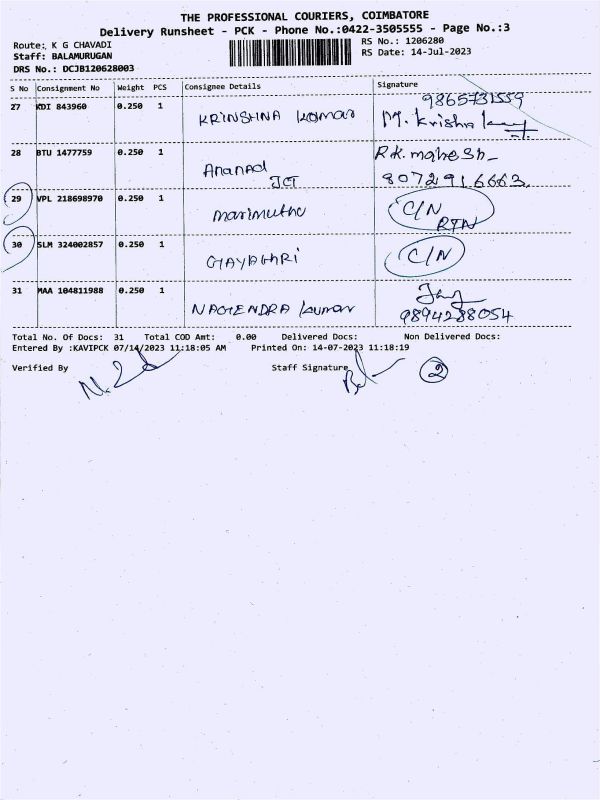 THE PROFESSIONAL COURIERS, COIMBATORE
Delivery Runsheet - PCK - Phone No.:0422-3505555 - Page No.:3
Route: K G CHAVADI
RS No.: 1206280
Staff: BALAMURUGAN
RS Date: 14-Jul-2023
DRS No.: DCJB120628003
S No Consignment No Weight PCS Consignee Details Signature
27 KDI 843960 0.250 1 KRINSHNA KUMAR 9865731559
M. Krishna
28 BTU 1477759 0.250 1 Ananad R.K. mahesh
JCT 8072916663.
29 VPL 218698970 0.250 1 marimuthu C/N
RTN
30 SLM 324002857 0.250 1 GAYATHRI C/N
31 MAA 104811988 0.250 1 NAGENDRA kumar
9894288054
Total No. Of Docs: 31 Total COD Amt: 0.00 Delivered Docs: Non Delivered Docs:
Entered By :KAVIPCK 07/14/2023 11:18:05 AM Printed On: 14-07-2023 11:18:19
Verified By Staff Signature 2